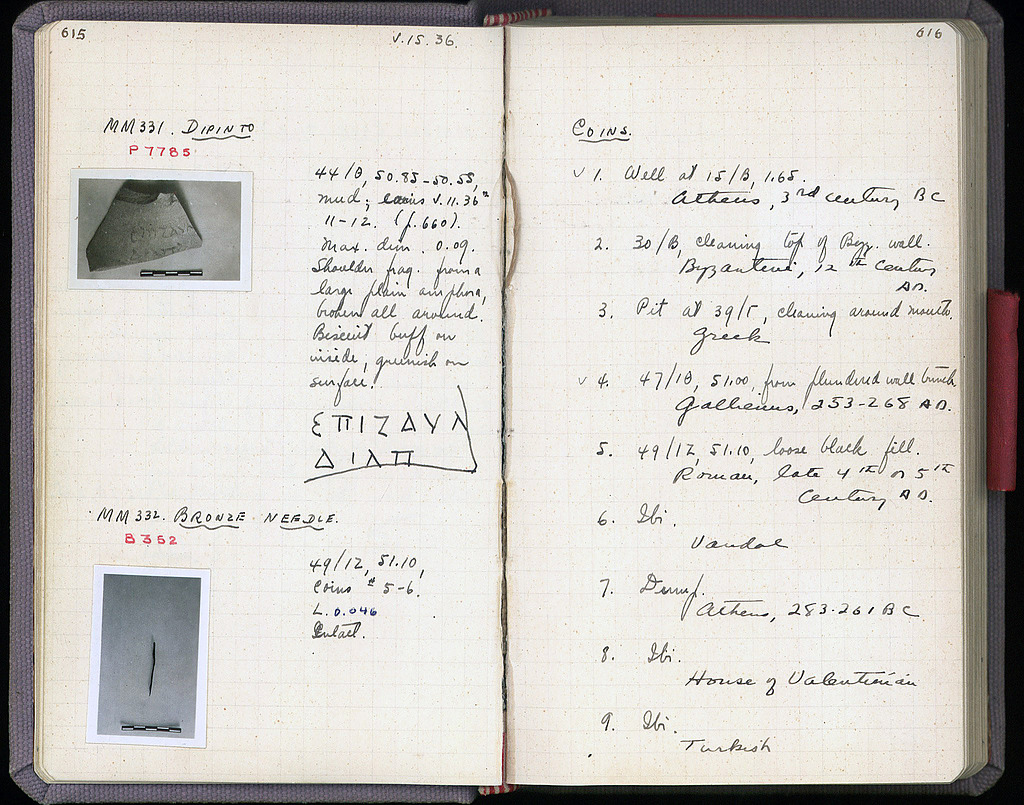 615
V.15.36.
MM331. DIPINTO
P 7785
44/Θ, 50.85–50.55,
mud; coins V.11.36 #
11–12. (p.660).
Max. dim. 0.09.
Shoulder frag. from a
large plain amphora,
broken all around.
Biscuit buff on
inside, greenish on
surface.
ΕΠΙΖΑΥΛ
ΔΙΛΠ
MM332. BRONZE NEEDLE.
B 352
49/ΙΖ, 51.10,
Coins # 5–6.
L. 0.046
Intact.
616
COINS.
✓ 1. Well at 15/Β, 1.65.
Athens, 3rd century BC
2. 30/Β, cleaning top of Byz. wall.
Byzantine, 12th century
AD.
3. Pit at 39/Γ, cleaning around mouth.
Greek
✓ 4. 47/ΙΘ, 51.00, from plundered wall trench
Gallienus, 253-268 AD.
5. 49/ΙΖ, 51.10, loose black fill.
Roman, late 4th or 5th
Century AD.
6. Ibi.
Vandal
7. Dump.
Athens, 283-261 BC
8. Ibi.
House of Valentinian
9. Ibi.
Turkish